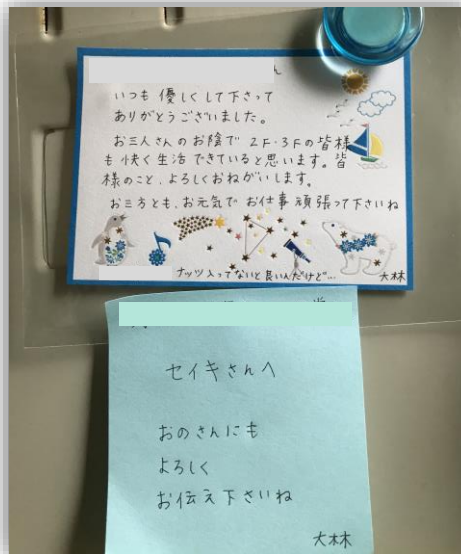 ん
いつも 優しくして下さって
ありがとうございました。
お三人さんのお陰で 2F・3Fの皆様
も快く生活できていると思います。皆
様のこと、よろしくおねがいします。
お三方とも、お元気で お仕事 頑張って下さいね
ナッツ入ってないと良いんだけど…
大林
セイキさんへ
おのさんにも
よろしく
お伝え下さいね
大林